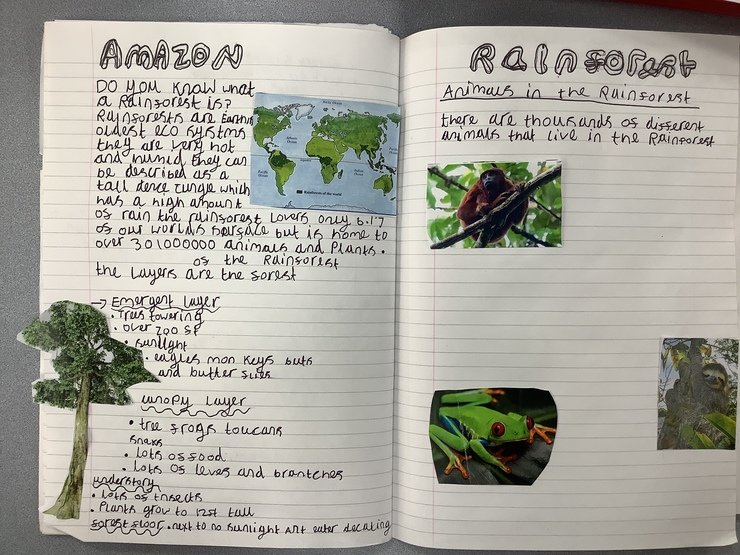 AMAZON
DO YOU KNOW what
a Rainforest is?
Rainforests are Earths
oldest eco systms
they are very hot
and humid they can
be described as a
tall dence jungle which
has a high amount
of rain the rainsorest covers only 6.1%
of our worlds sursase but is home to
over 301000000 animals and Plants.
of the Rainsorest
the Layers are the sorest
→ Emergent Layer
• Trees towering
• over 200 sf
• sunlight
• eagles mon keys buts
and butter slies
canopy Layer
• tree frogs toucans
snaks
• Lots of food
• Lots of leves and brantches
understory
• Lots of insects
• Plants grow to 12st tall
forest floor • next to no sunlight Ant eater decating
Arctic Ocean
Atlantic Ocean
Pacific Ocean
Indian Ocean
Rainforests of the world
Rainforest
Animals in the Rainforest
there are thousands of different
animals that live in the Rainforest